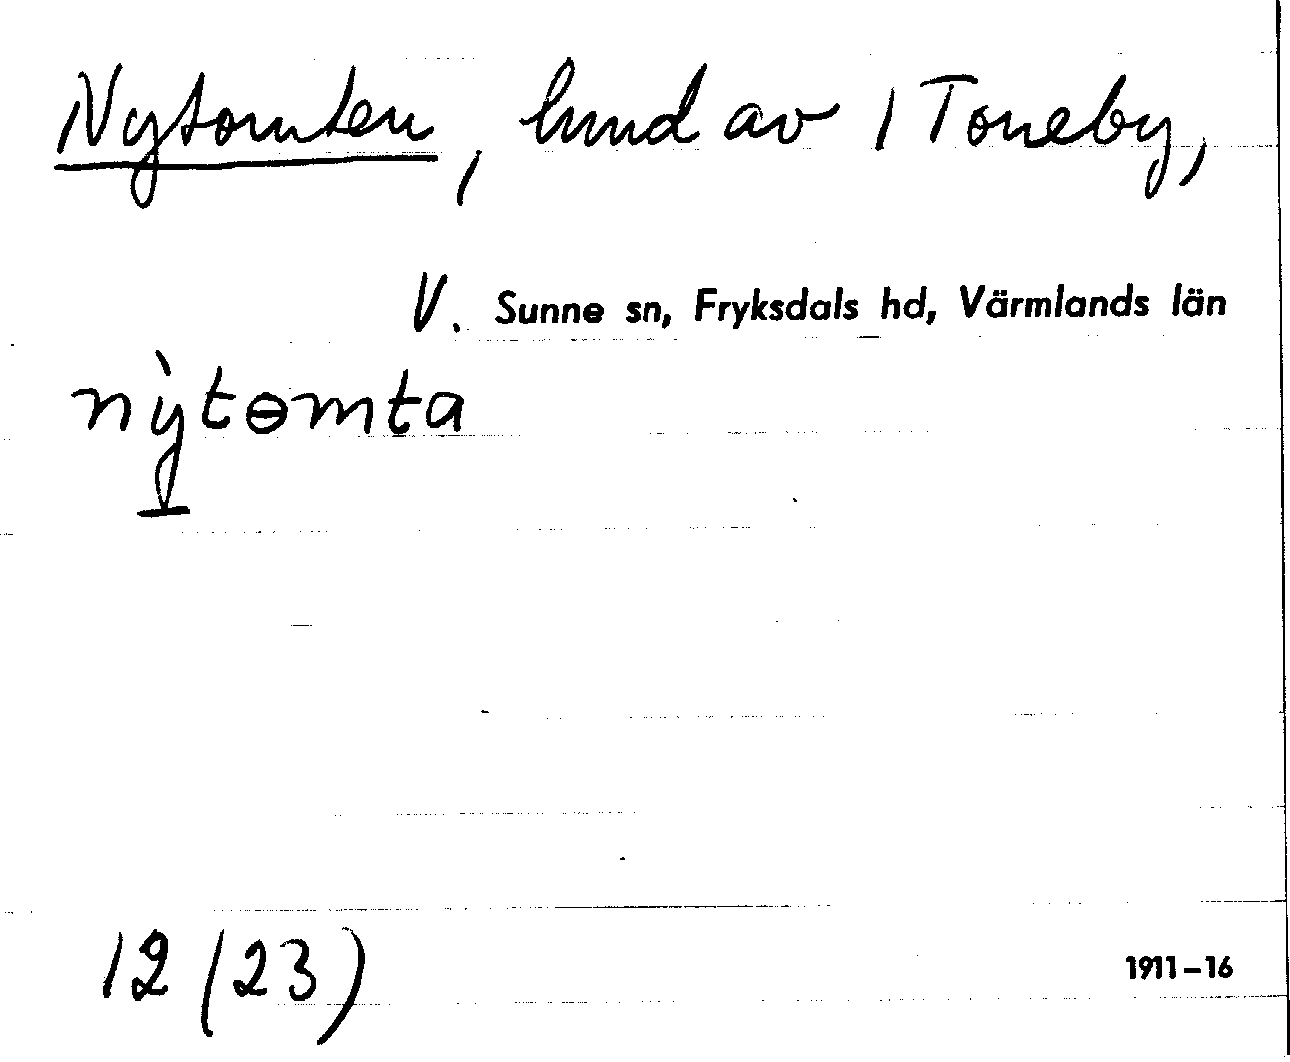 Nytomten, lund av 1 Toneby,
V. Sunne sn, Fryksdals hd, Värmlands län
nỳtɵmta
12 (23)
1911–16